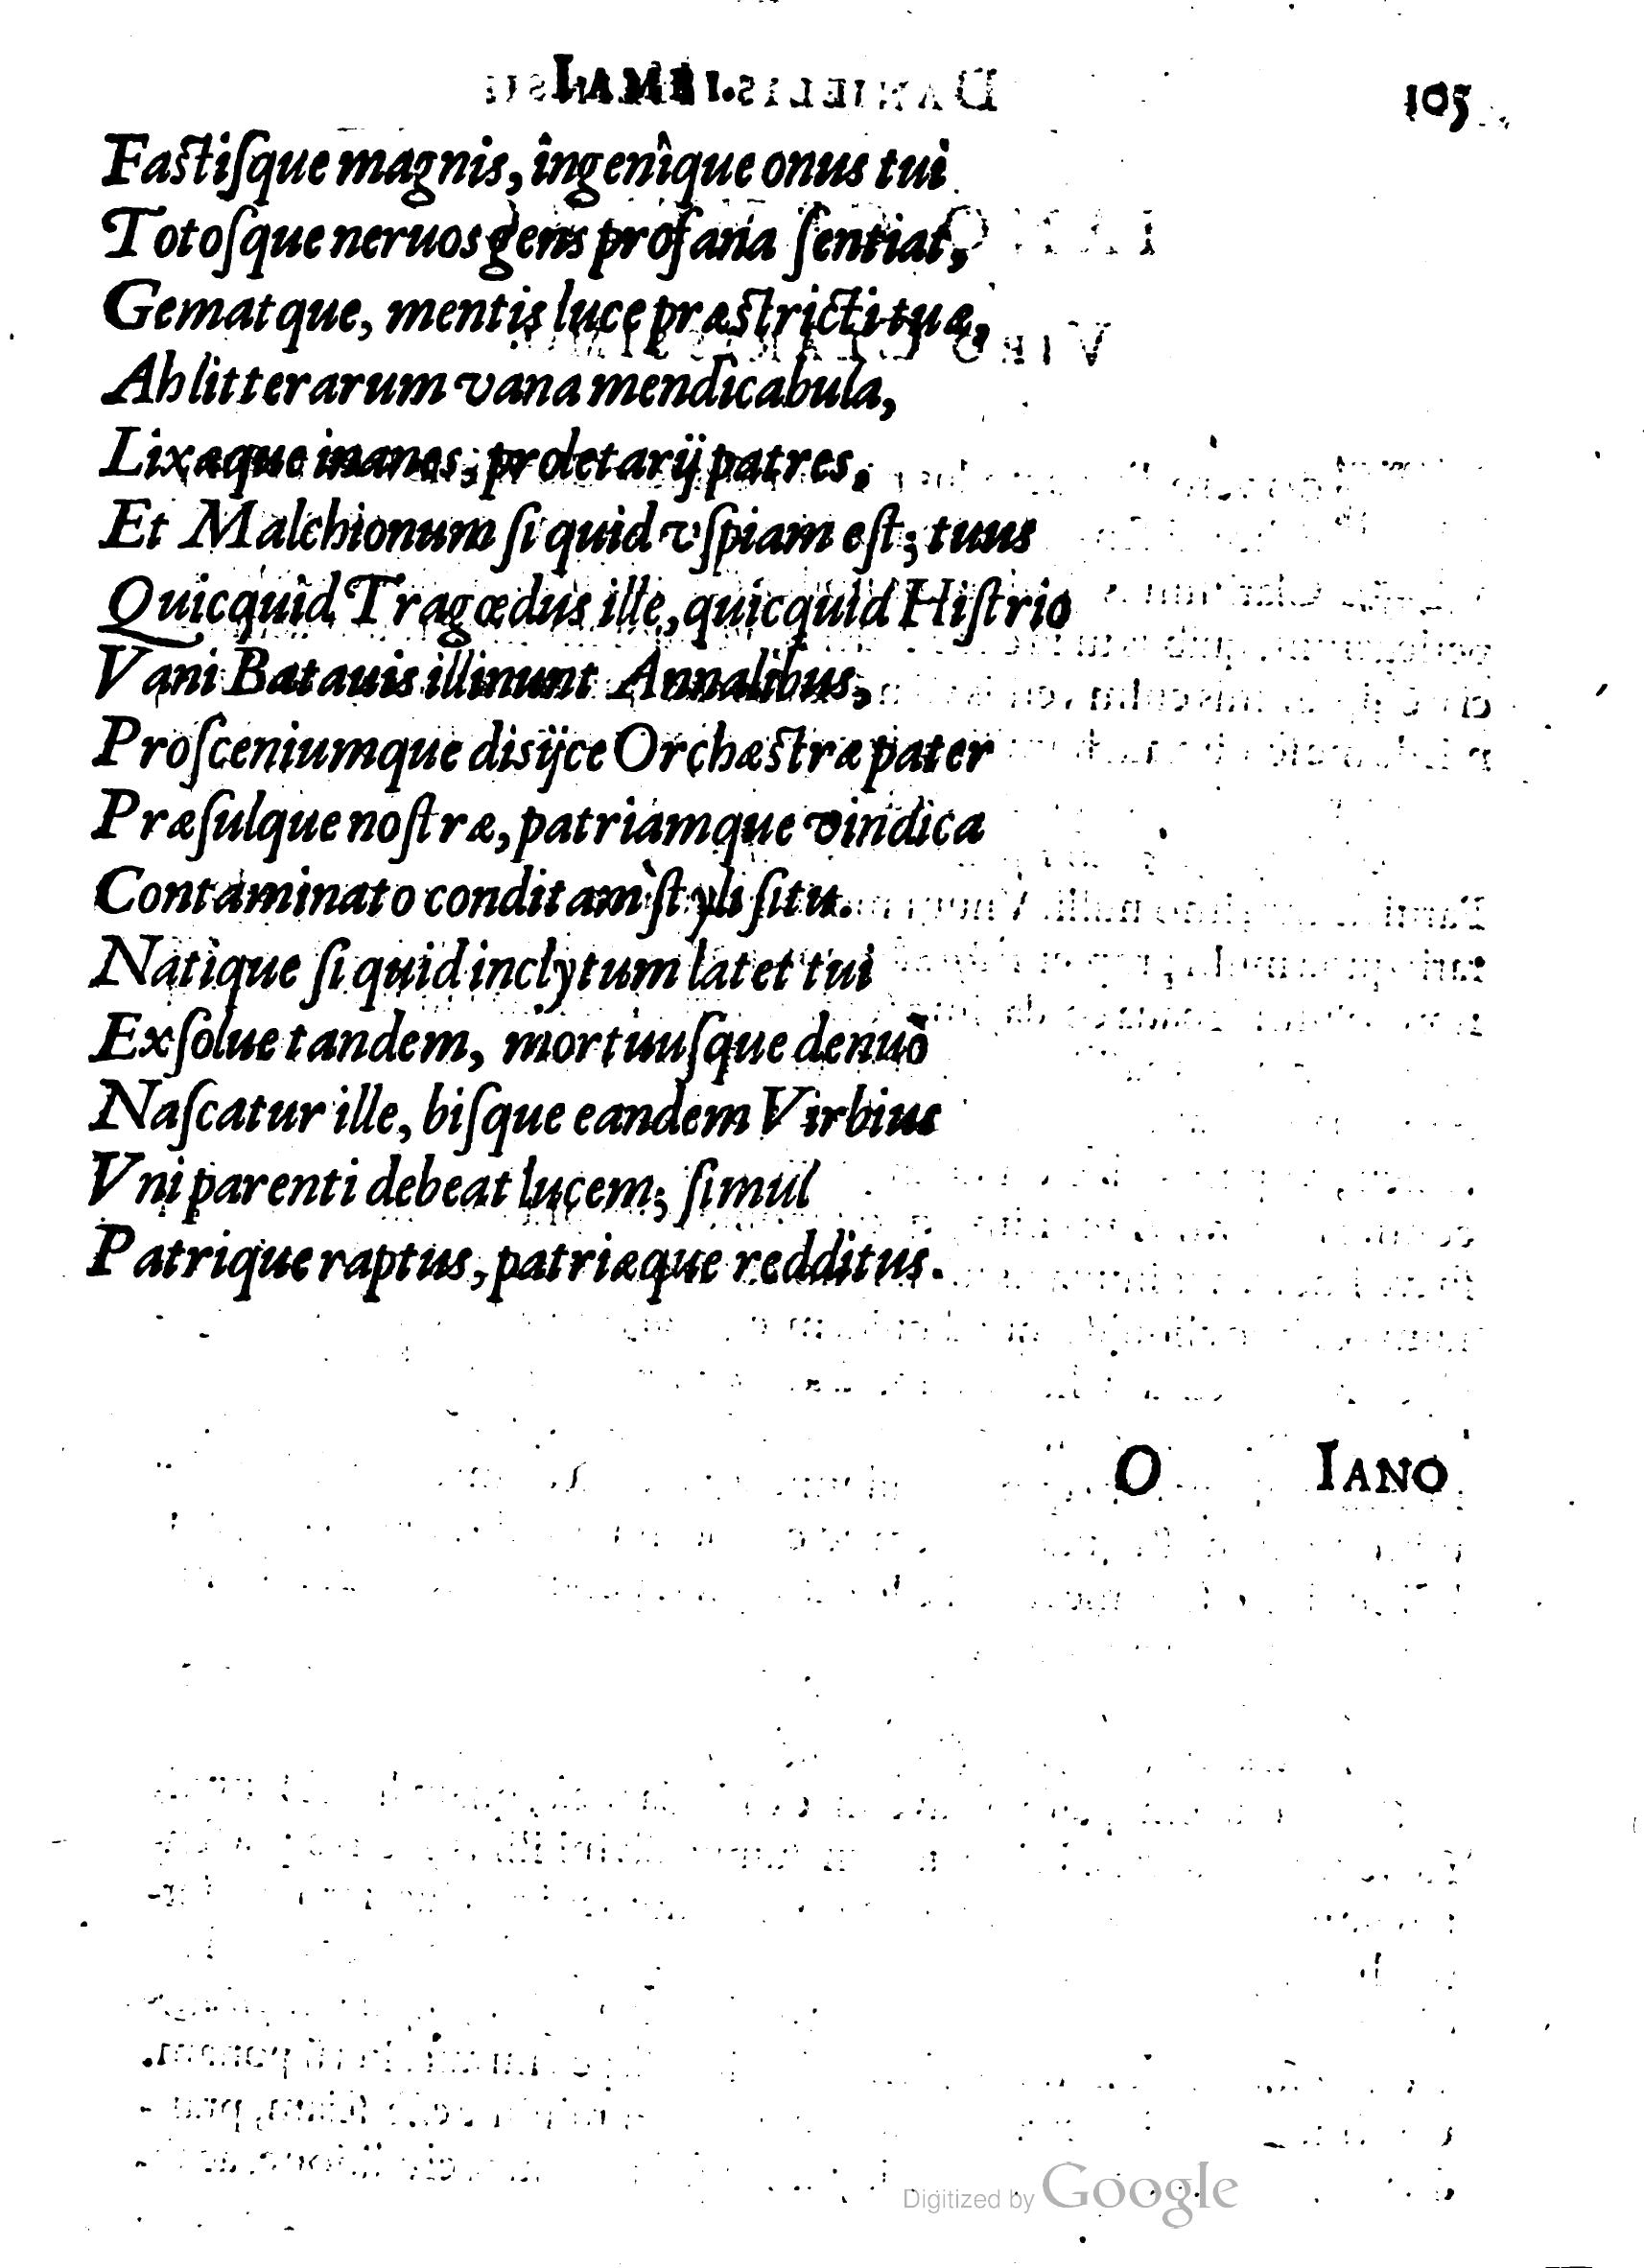 IAMBI. 105
Fastiſque magnis, îngenîque onus tui
Totoſque neruos gens profana ſentiat,
Gematque, mentis luce præstricti tuæ,
Ah litterarum vana mendicabula,
Lixæque inanes, proletarij patres,
Et Malchionum ſi quid vſpiam eſt; tuus
Quicquid Tragœdus ille, quicquid Hiſtrio
Vani Batauis illinunt Annalibus,
Proſceniumque disijce Orchæstræ pater
Præſulque noſtræ, patriamque vindica
Contaminato conditam ſtyli ſitu.
Natique ſi quid inclytum latet tui
Exſolue tandem, mortuuſque denuò
Naſcatur ille, biſque eandem Virbius
Vni parenti debeat lucem; ſimul
Patrique raptus, patriæque redditus.
O IANO
Digitized by Google